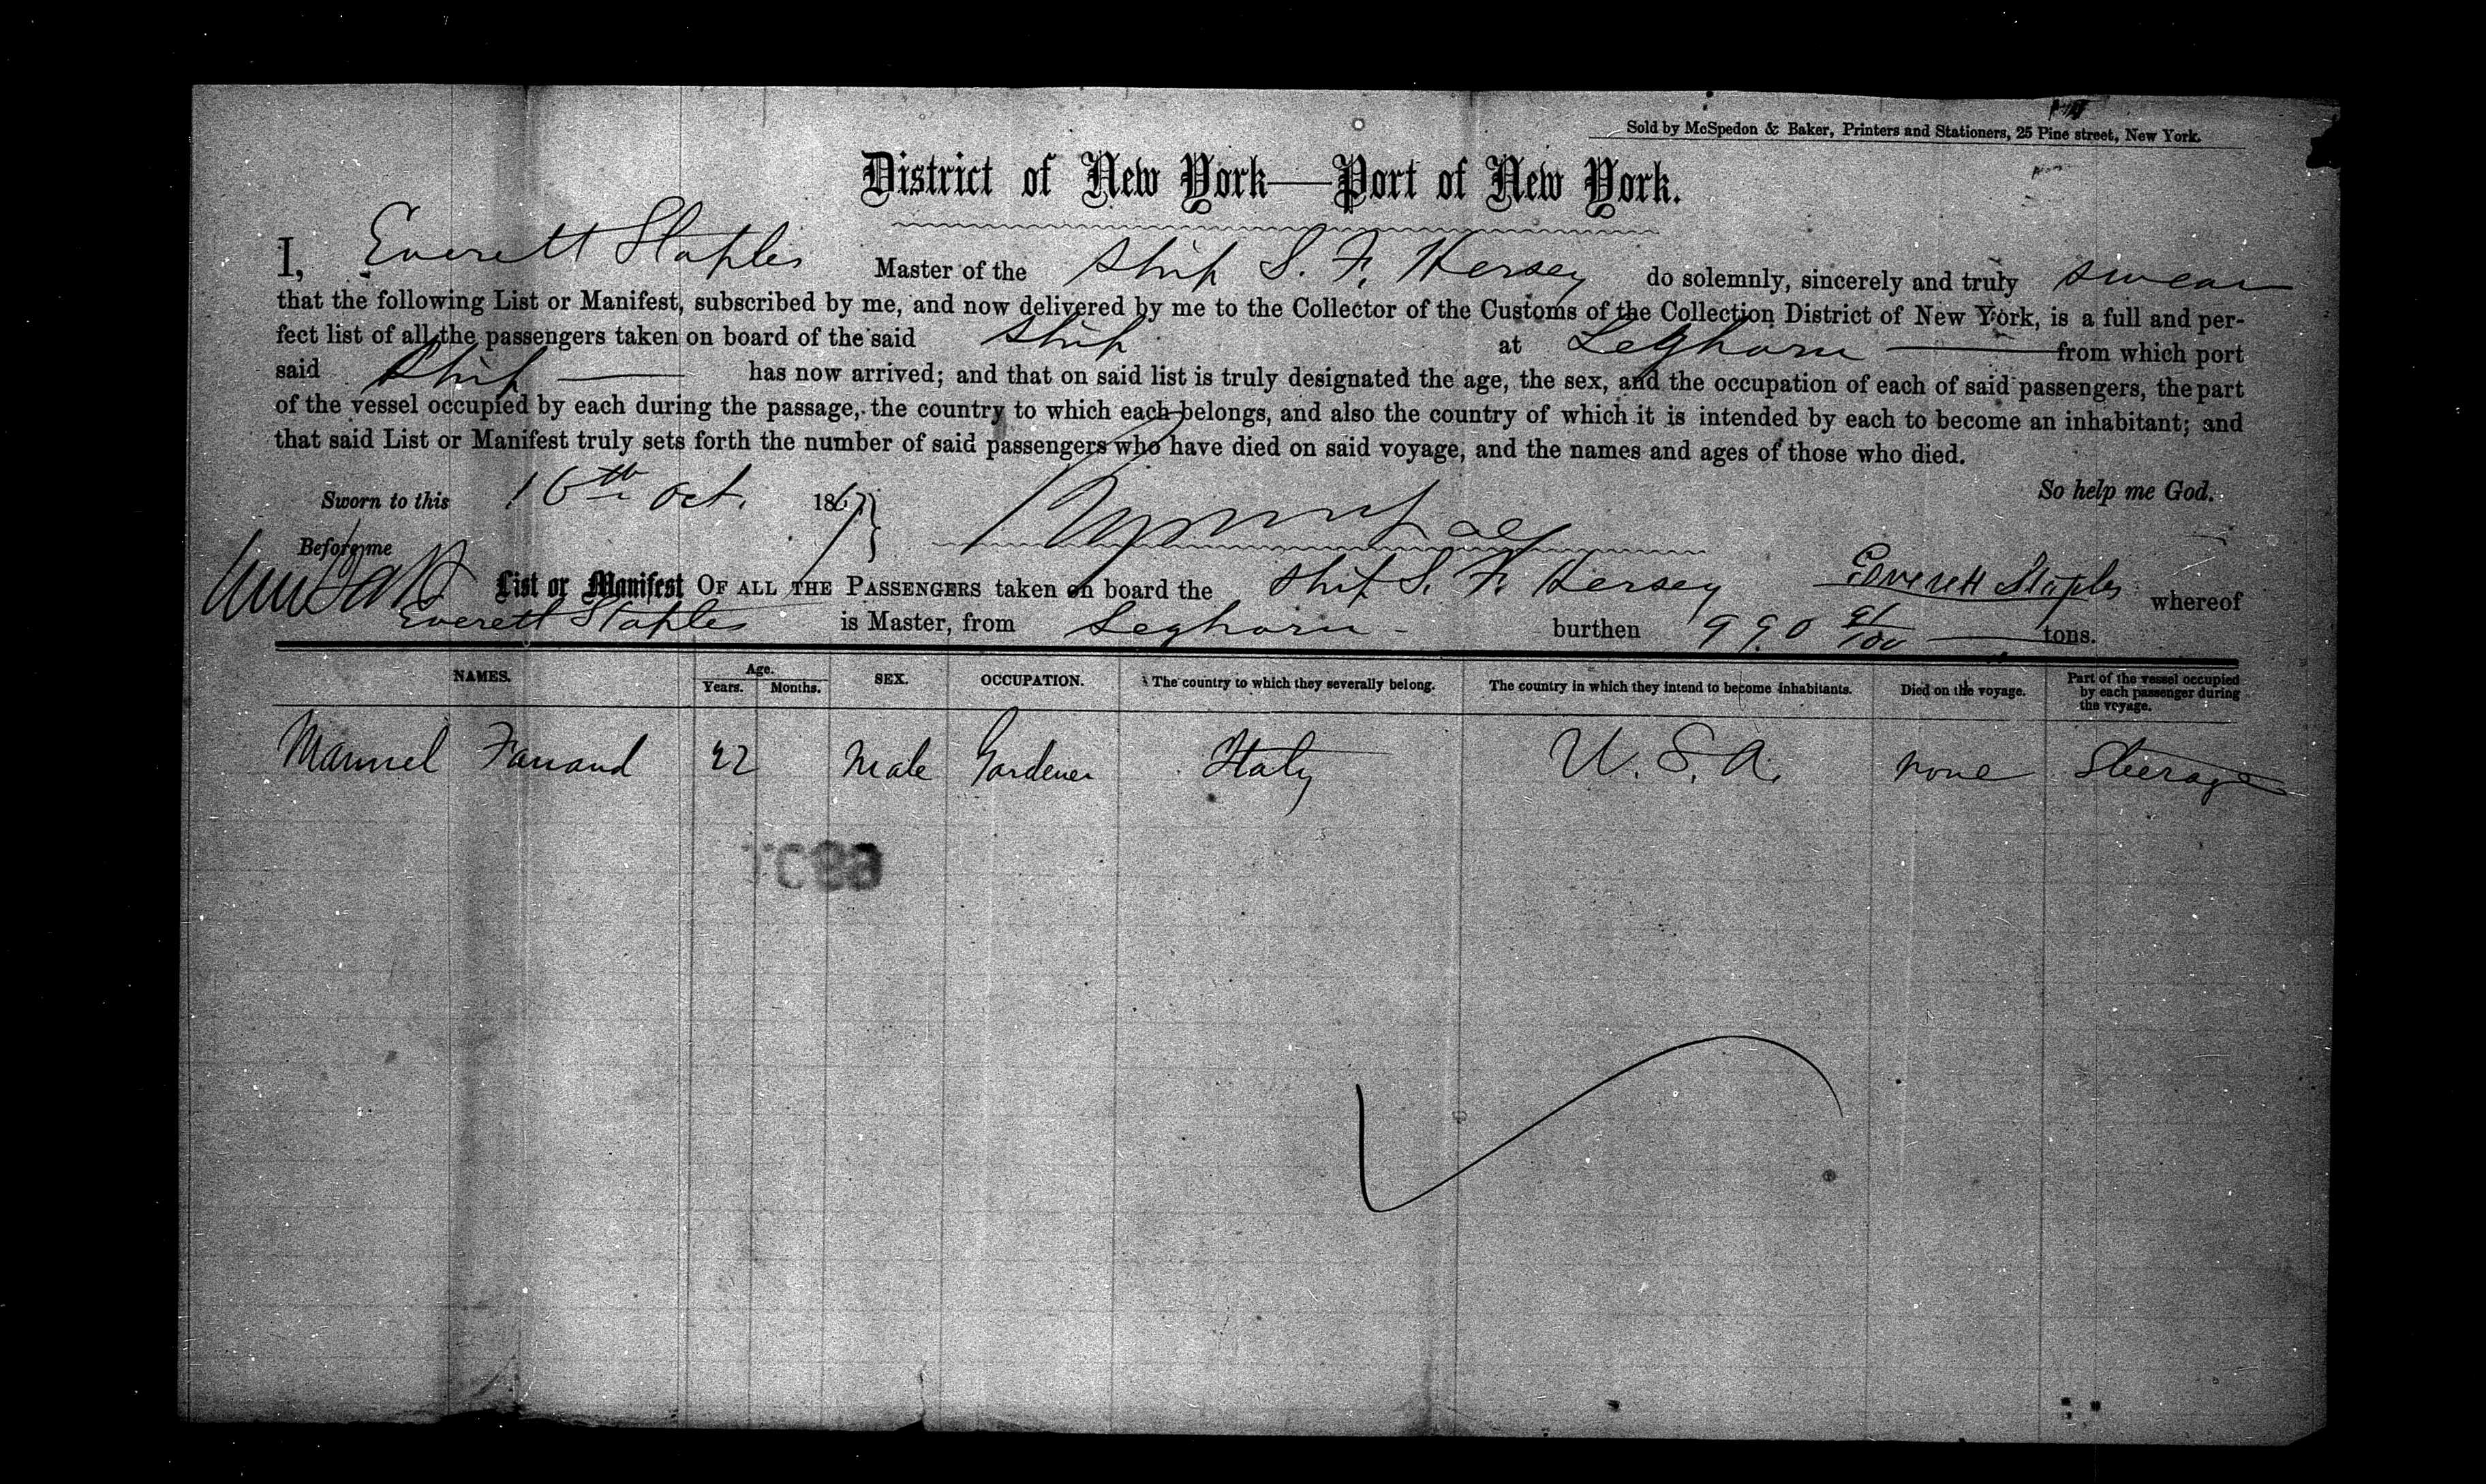 Sold by McSpedon & Baker, Printers and Stationers, 25 Pine street, New York.
District of New York—Port of New York.
I, Everett Staples Master of the Ship S. F. Hersey do solemnly, sincerely and truly swear
that the following List or Manifest, subscribed by me, and now delivered by me to the Collector of the Customs of the Collection District of New York, is a full and per-
fect list of all the passengers taken on board of the said Ship at Leghorn from which port
said Ship has now arrived; and that on said list is truly designated the age, the sex, and the occupation of each of said passengers, the part
of the vessel occupied by each during the passage, the country to which each belongs, and also the country of which it is intended by each to become an inhabitant; and
that said List or Manifest truly sets forth the number of said passengers who have died on said voyage, and the names and ages of those who died.
So help me God.
Sworn to this 16th Oct. 1867
Before me
Everett Staples
List or Manifest OF ALL THE PASSENGERS taken on board the Ship S. F. Hersey whereof
Everett Staples is Master, from Leghorn burthen 990 91/100 tons.
NAMES. Age. Years. Months. SEX. OCCUPATION. The country to which they severally belong. The country in which they intend to become inhabitants. Died on the voyage. Part of the vessel occupied by each passenger during the voyage.
Manuel 22 Male Gardener Italy U. S. A. none Steerage